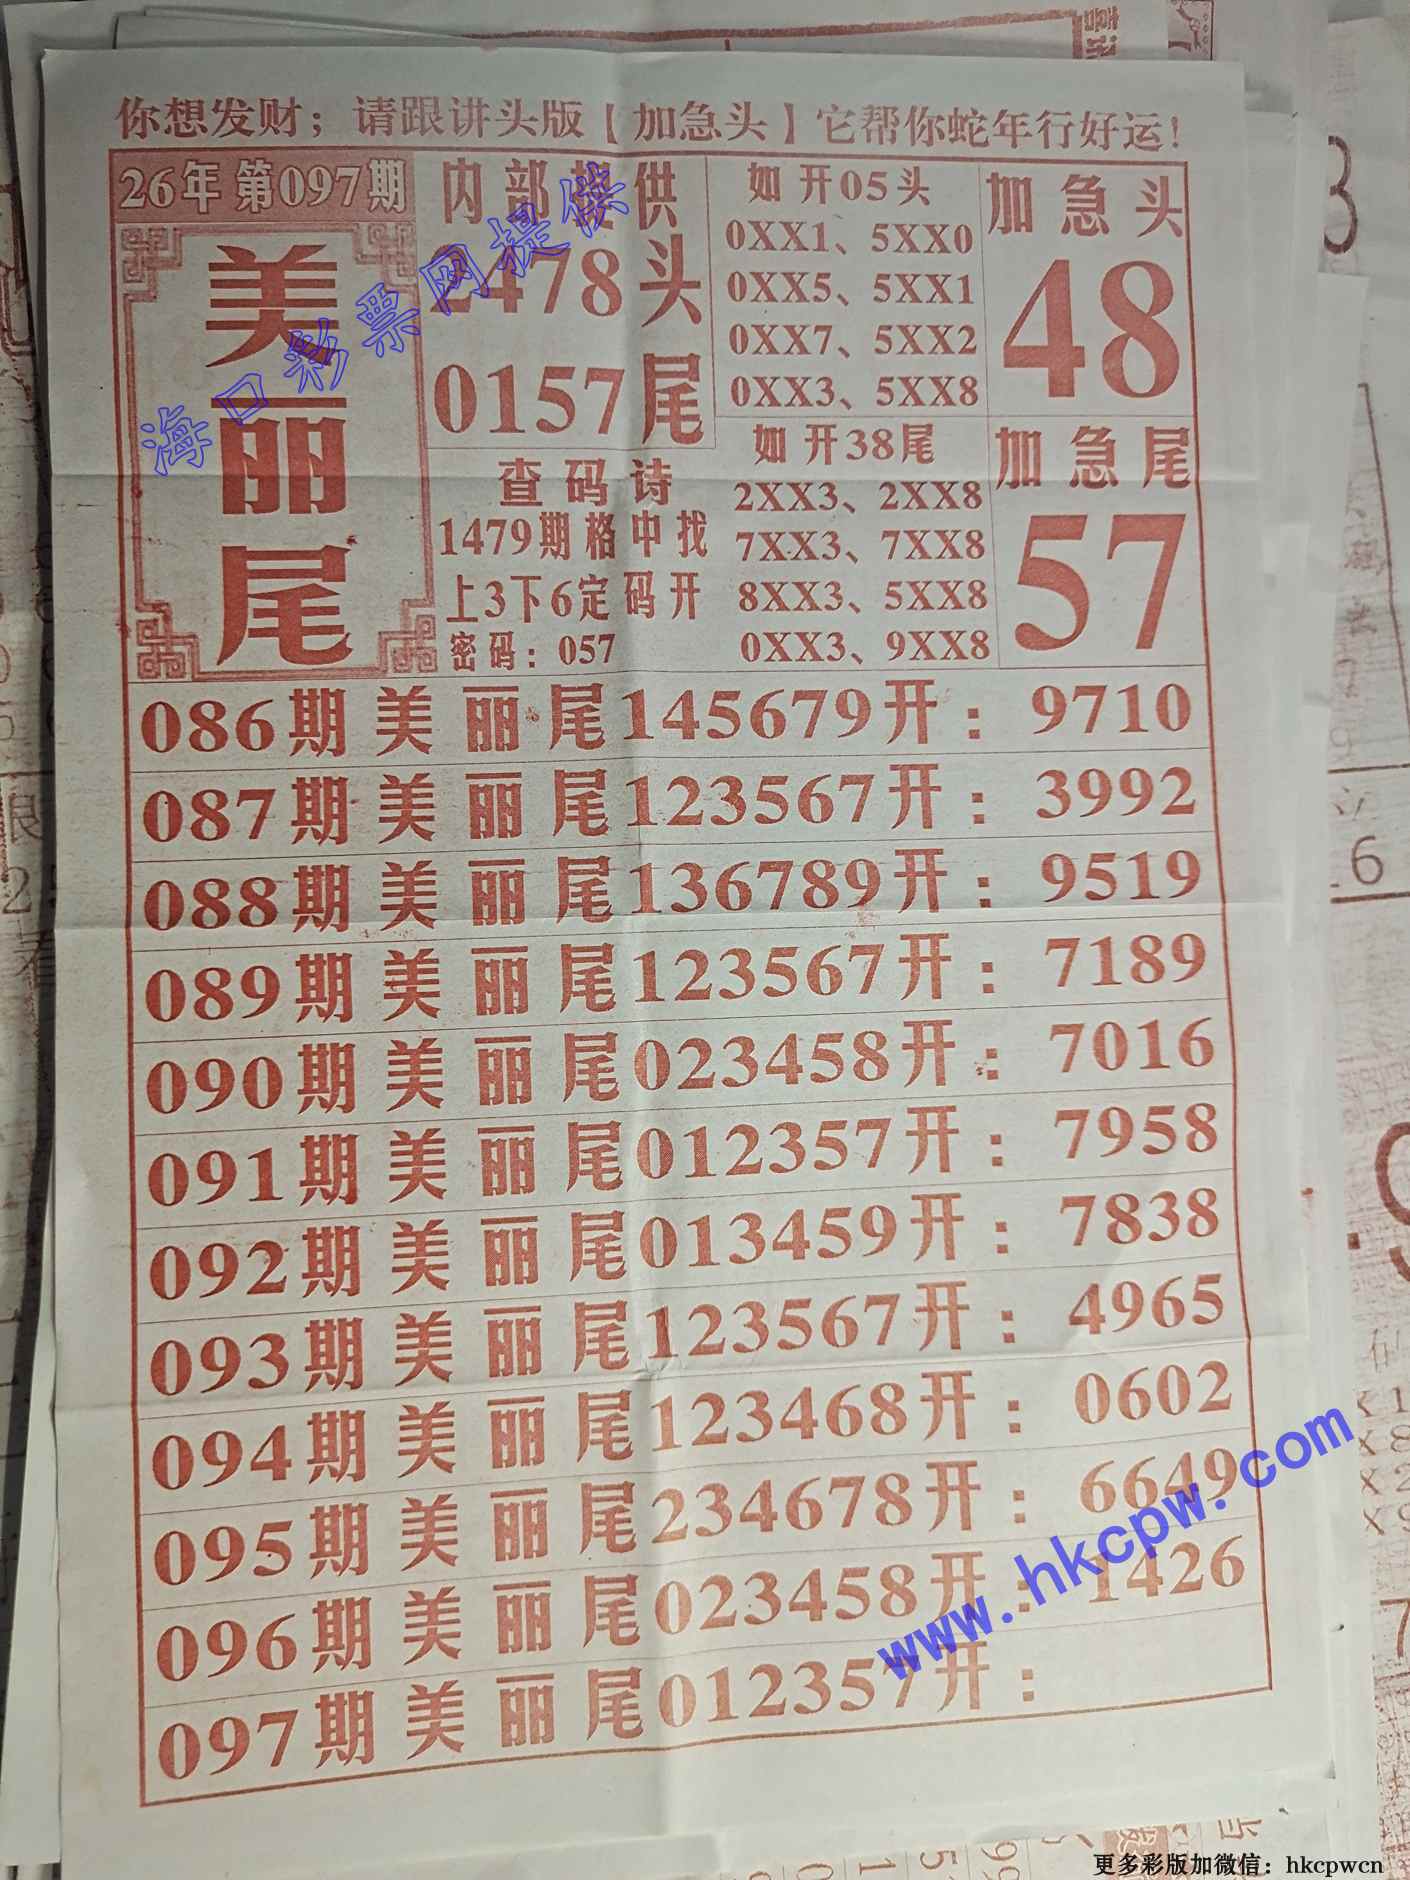 你想发财；请跟讲头版【加急头】它帮你蛇年行好运！
26年第097期
美丽尾
内部提供
2478头
0157尾
查码诗
1479期格中找
上3下6定码开
密码：057
如开05头
0XX1、5XX0
0XX5、5XX1
0XX7、5XX2
0XX3、5XX8
如开38尾
2XX3、2XX8
7XX3、7XX8
8XX3、5XX8
0XX3、9XX8
加急头
48
加急尾
57
086期美丽尾145679开：9710
087期美丽尾123567开：3992
088期美丽尾136789开：9519
089期美丽尾123567开：7189
090期美丽尾023458开：7016
091期美丽尾012357开：7958
092期美丽尾013459开：7838
093期美丽尾123567开：4965
094期美丽尾123468开：0602
095期美丽尾234678开：6649
096期美丽尾023458开：1426
097期美丽尾012357开：
海口彩票网提供
www.hkcpw.com
更多彩版加微信：hkcpwcn